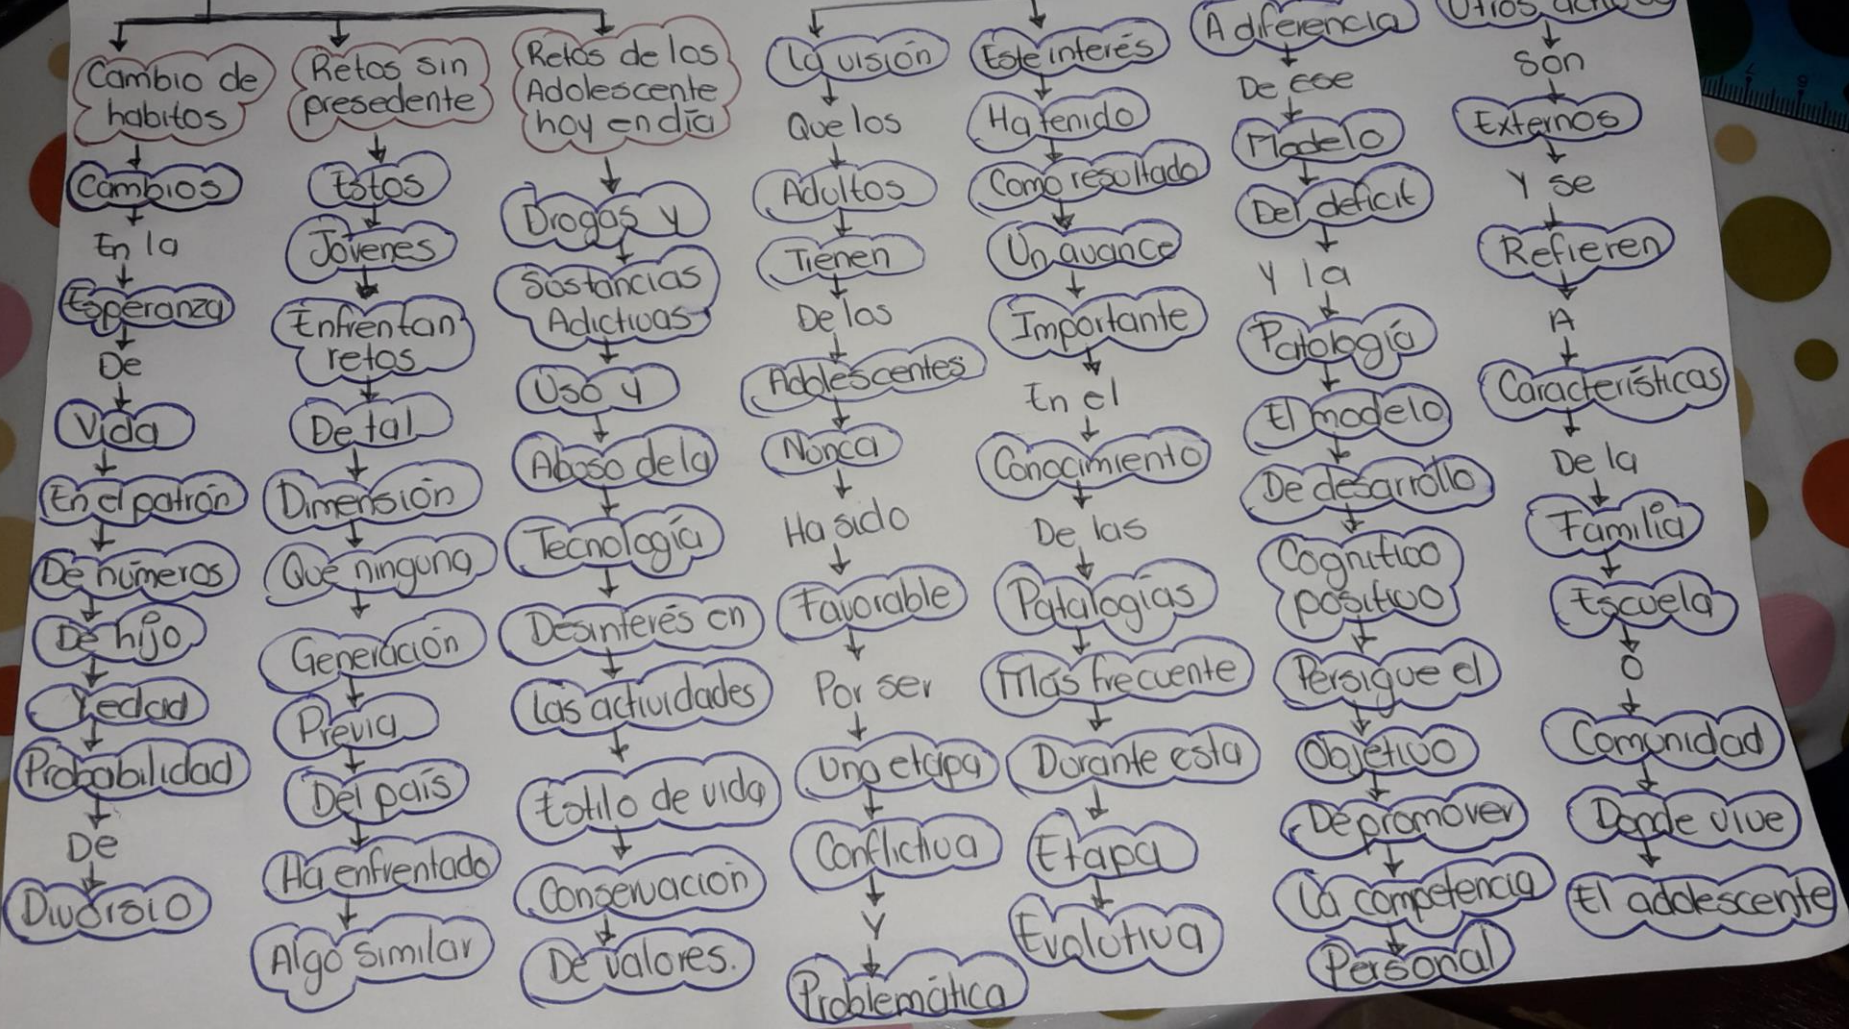 Cambio de
habitos
Cambios
En la
Esperanza
De
Vida
En el patrón
De números
De hijo
Y edad
Probabilidad
De
Divorsio
Retos sin
presedente
Estos
Jóvenes
Enfrentan
retos
De tal
Dimensión
Que ninguna
Generación
Previa
Del país
Ha enfrentado
Algo similar
Retos de los
Adolescente
hoy en día
Drogas y
Sustancias
Adictivas
Uso y
Abuso de la
Tecnología
Desinterés en
las actividades
Estilo de vida
Conservación
De valores.
La visión
Que los
Adultos
Tienen
De los
Adolescentes
Nunca
Ha sido
Favorable
Por ser
Una etapa
Conflictiva
Y
Problemática
Este interés
Ha tenido
Como resultado
Un avance
Importante
En el
Conocimiento
De las
Patalogías
Más frecuente
Durante esta
Etapa
Evolutiva
A diferencia
De ese
Modelo
Del deficit
Y la
Patología
El modelo
De desarrollo
Cognitico
positivo
Persigue el
Objetivo
De promover
La competencia
Personal
Otros
Son
Externos
Y se
Refieren
A
Características
De la
Familia
Escuela
O
Comunidad
Donde vive
El adolescente